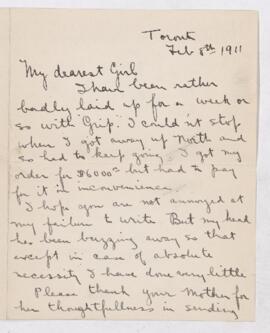 Toronto
Feb 8th 1911
My dearest Girl
I have been rather
badly laid up for a week or
so with "Grip". I could'nt stop
when I got away up North and
so had to keep going. I got my
order for $6000.00 but had to pay
for it in inconvenience.
I hope you are not annoyed at
my failure to write But my head
has been buzzing away so that
except in case of absolute
necessity I have done very little
Please thank your Mother for
her thoughtfullness in sending